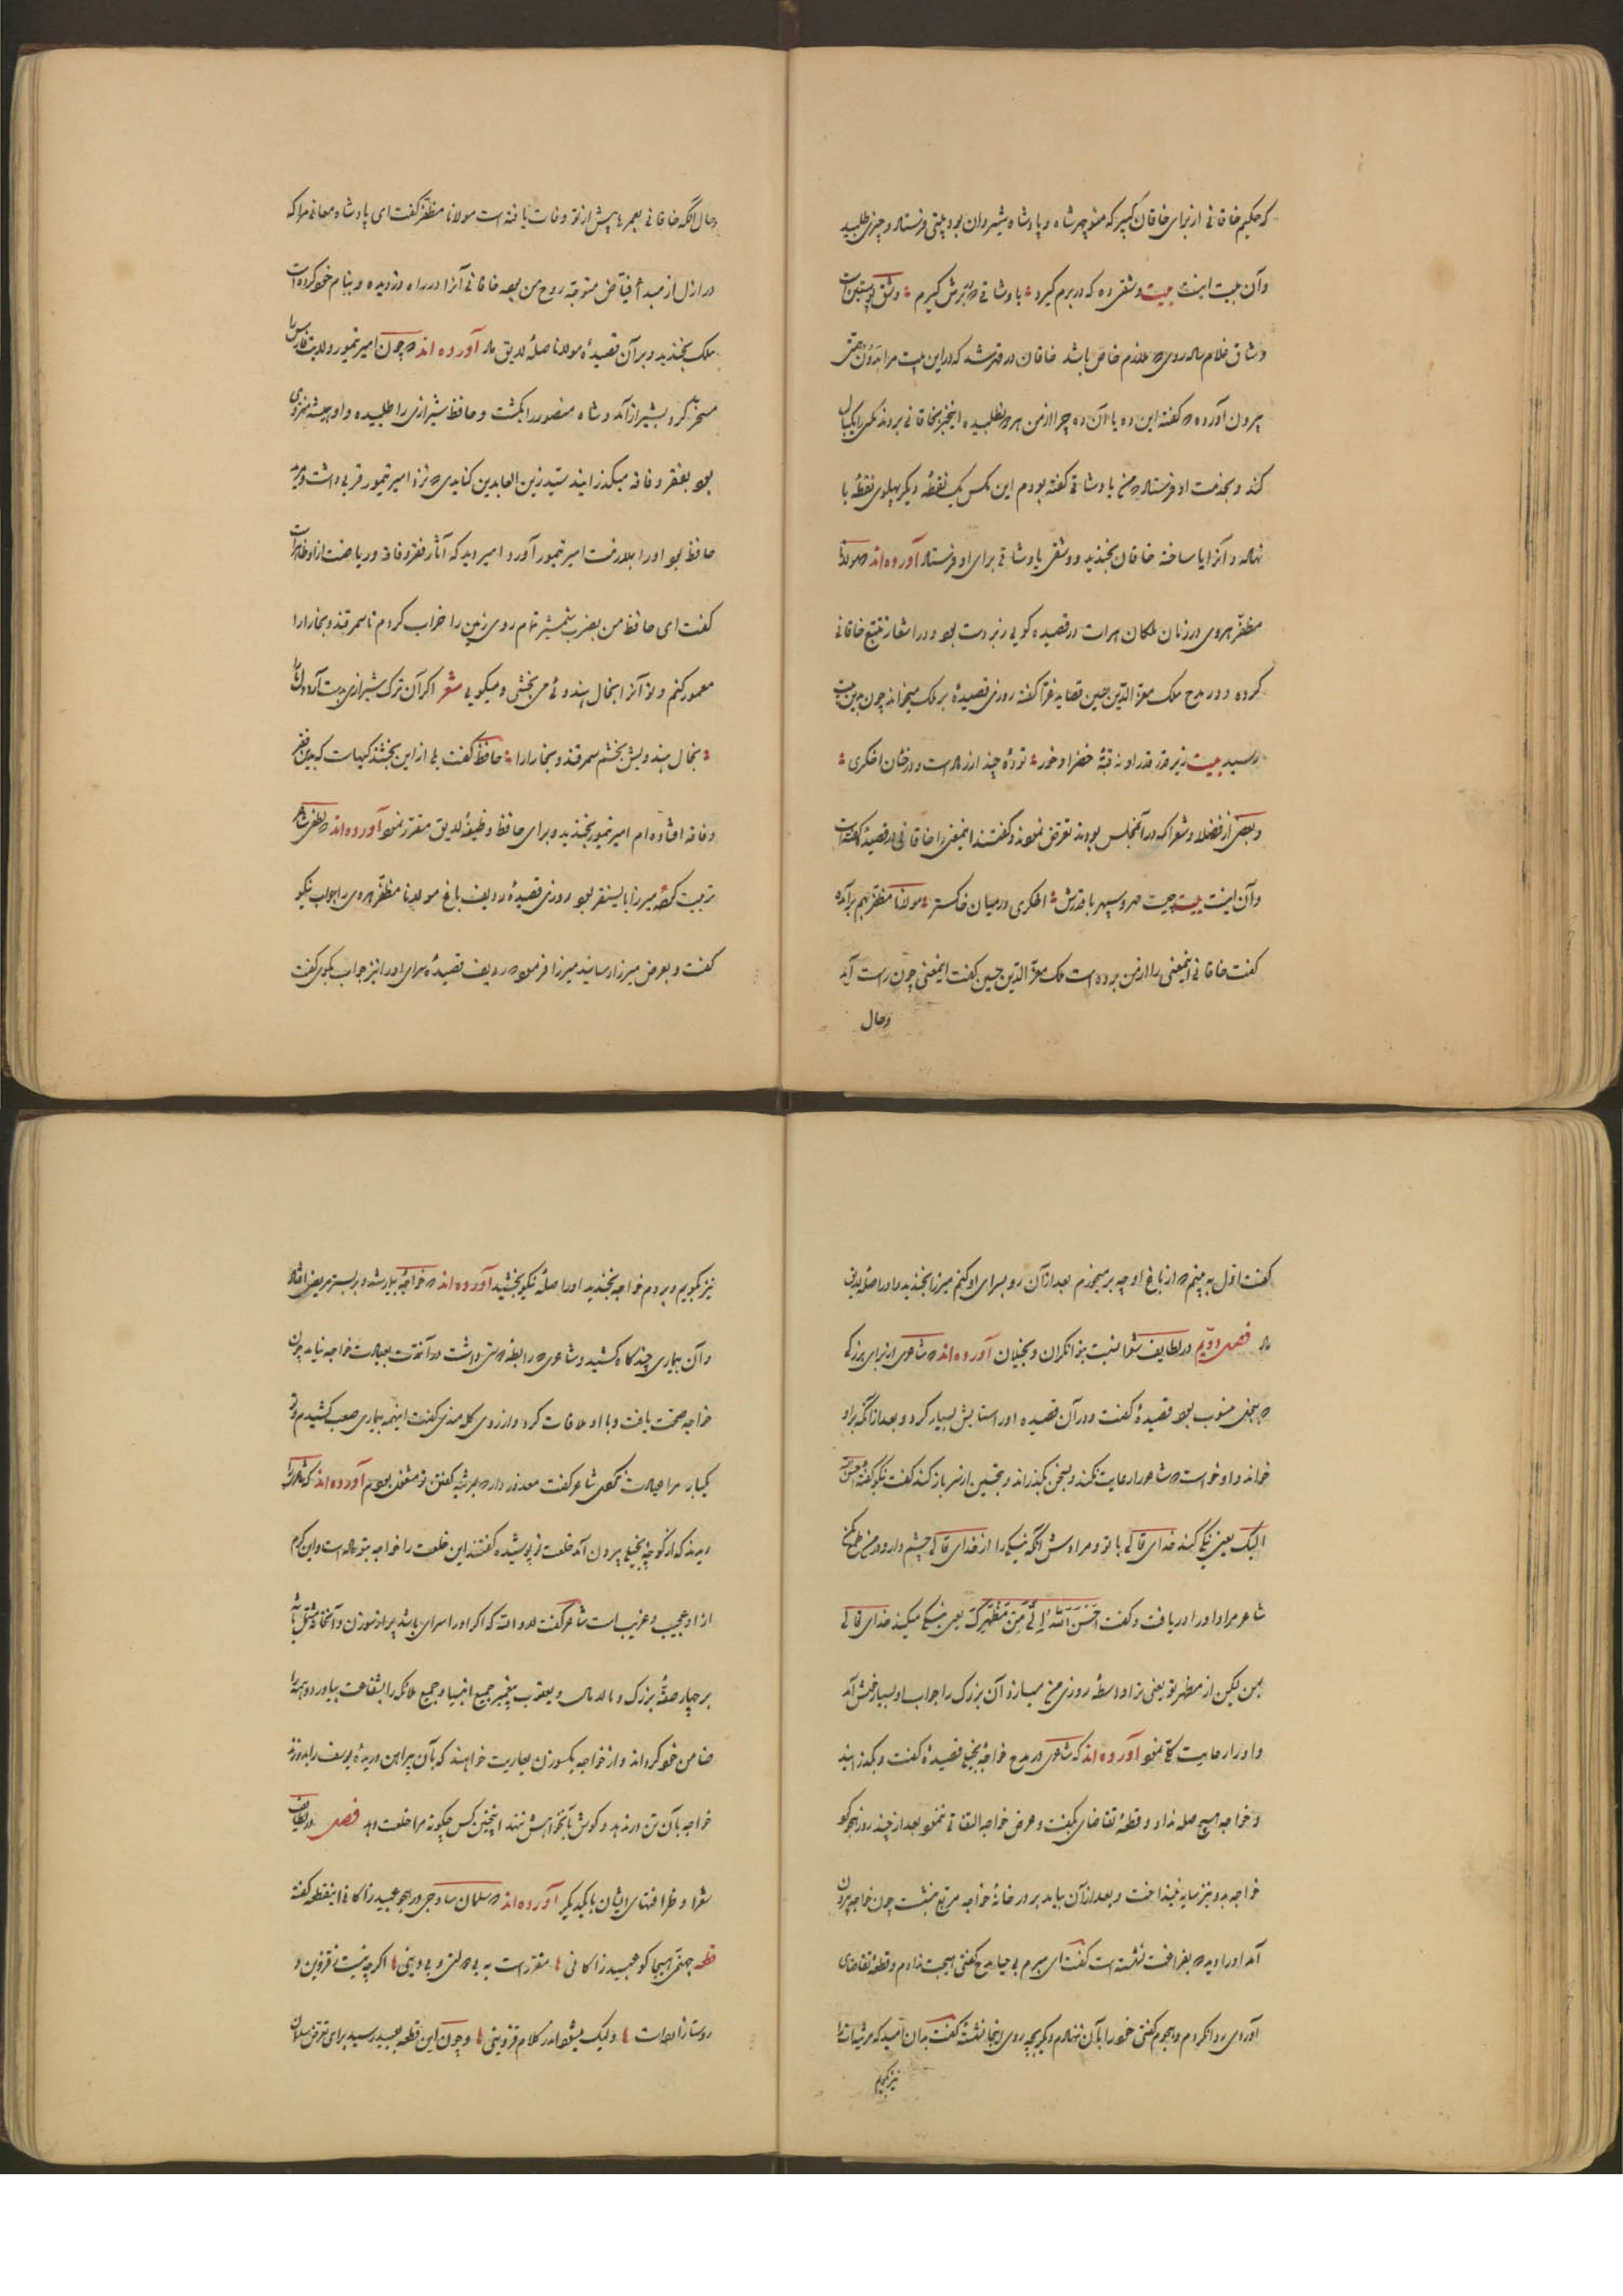 که حکیم خاقانی از برای خاقان کبیر که منوچهر شاه و پادشاه شیروان بود بیتی فرستاد و چیزی طلبید
و آن بیت اینست بیت وشقی ده که در برم گیرد یا وشاقی که در برش گیرم وشق پوستین است
وشاق غلام ساده روی که ملازم خاص باشد خاقان در قهر شد که در این بیت مرا بدون همتی
بیرون آورده که گفته این ده یا آن ده چرا از من هر دو نطلبیده این خبر بخاقانی بردند مگس را بکبال
کند و بخدمت او فرستاد که من با وشاقی گفته بودم این مگس یک نقطه دیگر پهلوی نقطه با
نهاده و آنرا یا ساخته خاقان بخندید و وشقی با وشاقی برای او فرستاد آورده‌اند که مولانا
مظفر هروی در زمان ملکان هرات در قصیده کویی زبر دست بود و در اشعار تتبع خاقانی
کرده و در مدح ملک معز الدین حسین قصاید غرا گفته روزی قصیدهٔ بر ملک میخواند چون بدین بیت
رسید بیت زیر قدر قدر او نه قبهٔ خضرا و خور تودهٔ چند ارزدست و درخان اخکری
و بعضی از فضلا و شعرا که در آن مجلس بودند تعرض نمودند و گفتند این معنی را خاقانی در قصیده گفته است
و آن اینست بیت چیست مهر و سپهر با قدرش اخکری در میان خاکستر مولانا مظفر بهم برآمد
گفت خاقانی این معنی را از من برده است ملک معز الدین حسین گفت این معنی چون راست آید
وحال
وحال آنکه خاقانی بعمرها پیش از تو وفات یافته است مولانا مظفر گفت ای پادشاه معانی مرا که
در ازل از مبدأ فیاض متوجه روح من بود خاقانی آنرا در راه دزدیده و بنام خود کرده است
ملک بخندید و بر آن قصیده مولانا صلهٔ لایق داد آورده‌اند که چون امیر تیمور ولایت فارس را
مسخر کرد بشیراز آمد و شاه منصور را بکشت و حافظ شیرازی را طلبیده و او همیشه منزوی
بود بفقر و فاقه میکذرانید سید زین العابدین کنابدی که نزد امیر تیمور قربی داشت و مرید
حافظ بود او را بملازمت امیر تیمور آورد امیر دید که آثار فقر و فاقه و ریاضت از او ظاهر است
گفت ای حافظ من بضرب شمشیر تمام روی زمین را خراب کردم تا سمرقند و بخارا را
معمور کنم و تو آنرا بخال هندوئی می بخشی و میکویی شعر اکر آن ترک شیرازی بدست آرد دل ما را
بخال هندویش بخشم سمرقند و بخارا را حافظ گفت بلی از این بخشندکیهاست که بدین فقر
و فاقه افتاده‌ام امیر تیمور بخندید و برای حافظ وظیفهٔ لایق مقرر نمود آورده‌اند که لطفی شاعر
تربیت کردهٔ میرزا بایسنقر بود روزی قصیدهٔ ردیف باغ مولانا مظفر هروی را جواب نیکو
گفت و بعرض میرزا رسانید میرزا فرمود که ردیف قصیده سرای او را نیز جواب بکوی گفت
گفت اول به بینم که از باغ او چه بر میخورم بعد از آن رو بسرای او کنم میرزا بخندید و او را صلهٔ لایق
داد فصل دویم در لطایف شعرا نسبت بتوانکران و بخیلان آورده‌اند که شاعری از برای بزرکی
که ببخل منسوب بود قصیدهٔ گفت و در آن قصیده او را ستایش بسیار کرد و بعد از آنکه بر او
خواند و او خواست که شاعر را رعایت نکند و بسخن بکذراند و بتحسین از سر باز کند گفت نیکو گفتهٔ احسن الله
الیک یعنی نیکی کند خدای تعالی با تو و مرادش آنکه نیکی را از خدای تعالی چشم دار و در من طمع مکن
شاعر مراد او را دریافت و گفت احسن الله الی من مظهرک یعنی نیکی میکند خدای تعالی
بمن لیکن از مظهر تو یعنی ترا واسطهٔ روزی من میسازد آن بزرک را جواب او بسیار خوش آمد
و او را رعایت کلی نمود آورده‌اند که شاعری در مدح خواجهٔ بخیل قصیدهٔ گفت و بکذرانید
و خواجه هیچ صله نداد و قطعهٔ تقاضای بگفت و عرض خواجه التفاتی ننمود بعد از چند روز هجو کو
خواجه بدو نیز سایه نینداخت و بعد از آن بیامد بر در خانهٔ خواجه مربع بنشست چون خواجه بیرون
آمد او را دید که بفراغت نشسته است گفت ای مبرم بی حیا مدح گفتی هیچت ندادم و قطعهٔ تقاضای
آوردی روا نکردم و هجوم گفتی خود را بآن ننهادم دیگر بچه روی اینجا نشستهٔ گفت بدان امید که مرثیه‌ات را
نیز بکویم
نیز بکویم و بروم خواجه بخندید او را صلهٔ نیکو بخشید آورده‌اند که خواجهٔ بیمار شد و بر بستر مرض افتاد
و آن بیماری چند کاه کشید و شاعری که رابطهٔ داشت در آن مدت بعیادت خواجه نیامد چون
خواجه صحت یافت و با او ملاقات کرد و از روی کله مندی گفت اینهمه بیماری صعب کشیدم و تو
یکبار مرا عیادت نکردی شاعر گفت معذور دار که بمرثیه گفتن تو مشغول بودم آورده‌اند که شاعری را
دیدند که از کوچهٔ بخیلی بیرون آمد خلعت نو پوشیده گفتند این خلعت را خواجه بتو داده است و این کرم
از او عجیب و غریب است شاعر گفت لا والله که اکر او را سرای باشد پر از سوزن و آنخانه مشتمل باشد
بر چهار صفهٔ بزرک و مالامال و یعقوب پیغمبر جمیع انبیا و جمیع ملائکه را بشفاعت بیاورد و همه را
ضامن خود کرداند و از خواجه یکسوزن بعاریت خواهند که بآن پیراهن دریدهٔ یوسف را بدوزند
خواجه بآن تن در ندهد و کوش بآنخواهش ننهد اینچنین کس چکونه مرا خلعت دهد فصل در لطایف
شعرا و ظرافتهای ایشان با یکدیکر آورده‌اند که سلمان ساوجی در هجو عبید زاکانی این قطعه گفته
قطعه جهنمی هجا کو عبید زاکانی مقرر است به بی دولتی و بی دینی اکر چه نیست ز قزوین و
روستا زاده است ولیک میشود اندر کلام قزوینی و چون این قطعه بعبید رسید برای تعرض سلمان